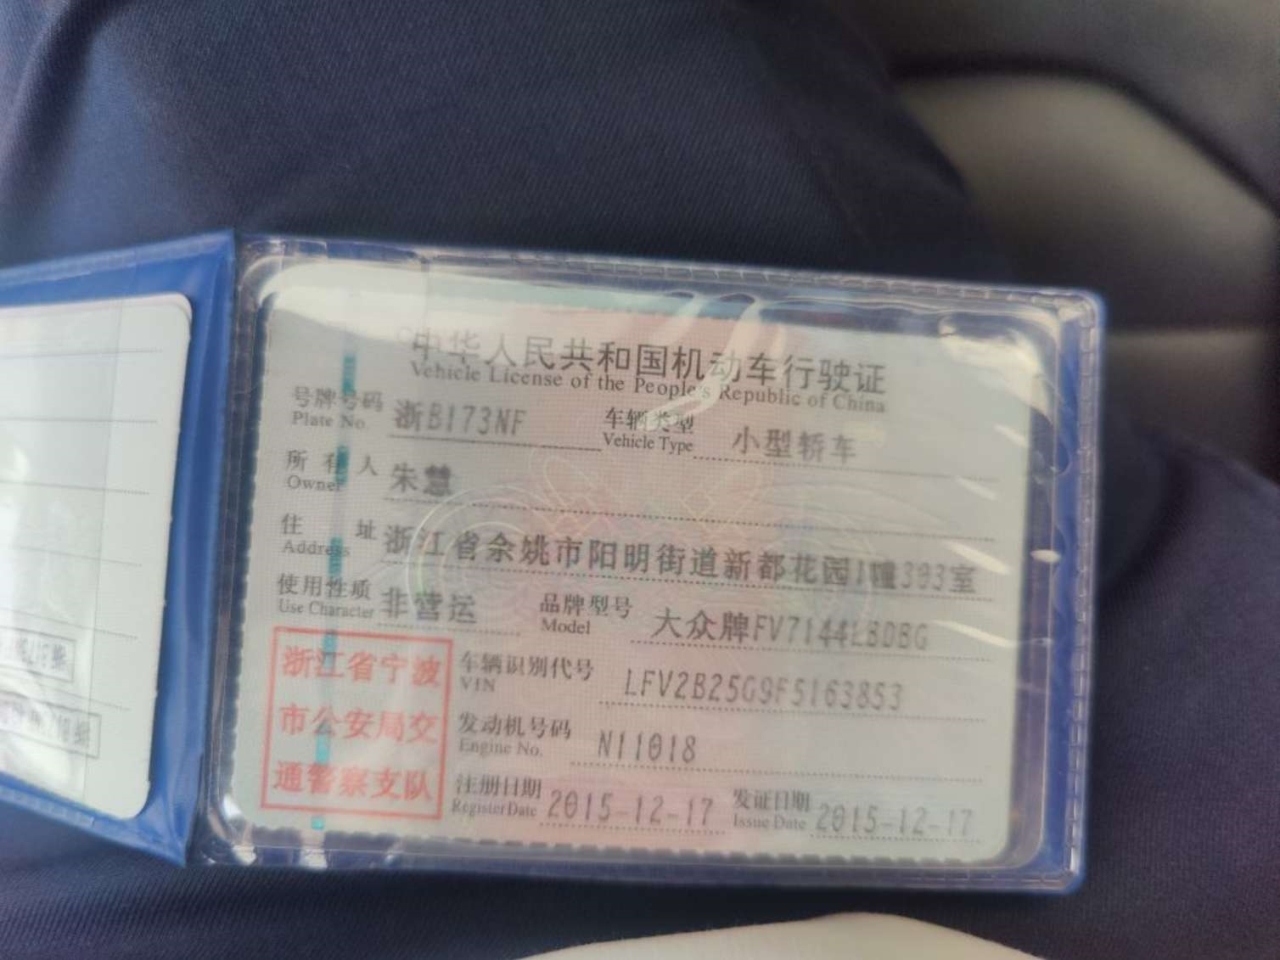 中华人民共和国机动车行驶证
Vehicle License of the People's Republic of China
号牌号码 浙B173NF 车辆类型 小型轿车
Plate No. Vehicle Type
所有人 朱慧
Owner
住址 浙江省余姚市阳明街道新都花园1幢303室
Address
使用性质 非营运 品牌型号 大众牌FV7144LBDBG
Use Character Model
浙江省宁波
市公安局交
通警察支队
车辆识别代号 LFV2B25G9F5163853
VIN
发动机号码 N11018
Engine No.
注册日期 2015-12-17 发证日期 2015-12-17
Register Date Issue Date